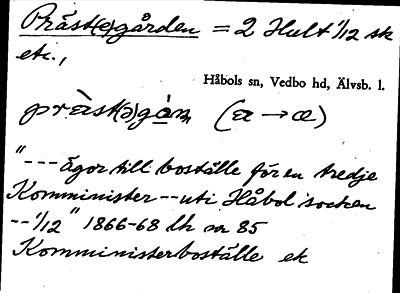 Präst(e)gården = 2 Hult 1/12 sk
etc.,
Håbols sn, Vedbo hd, Älvsb. l.
präst(ə)gán, (a → æ)
"--- ägor till boställe för en tredje
Komminister -- uti Håbol socken
-- 1/12" 1866-68 lh nr 85
Komministerboställe ek